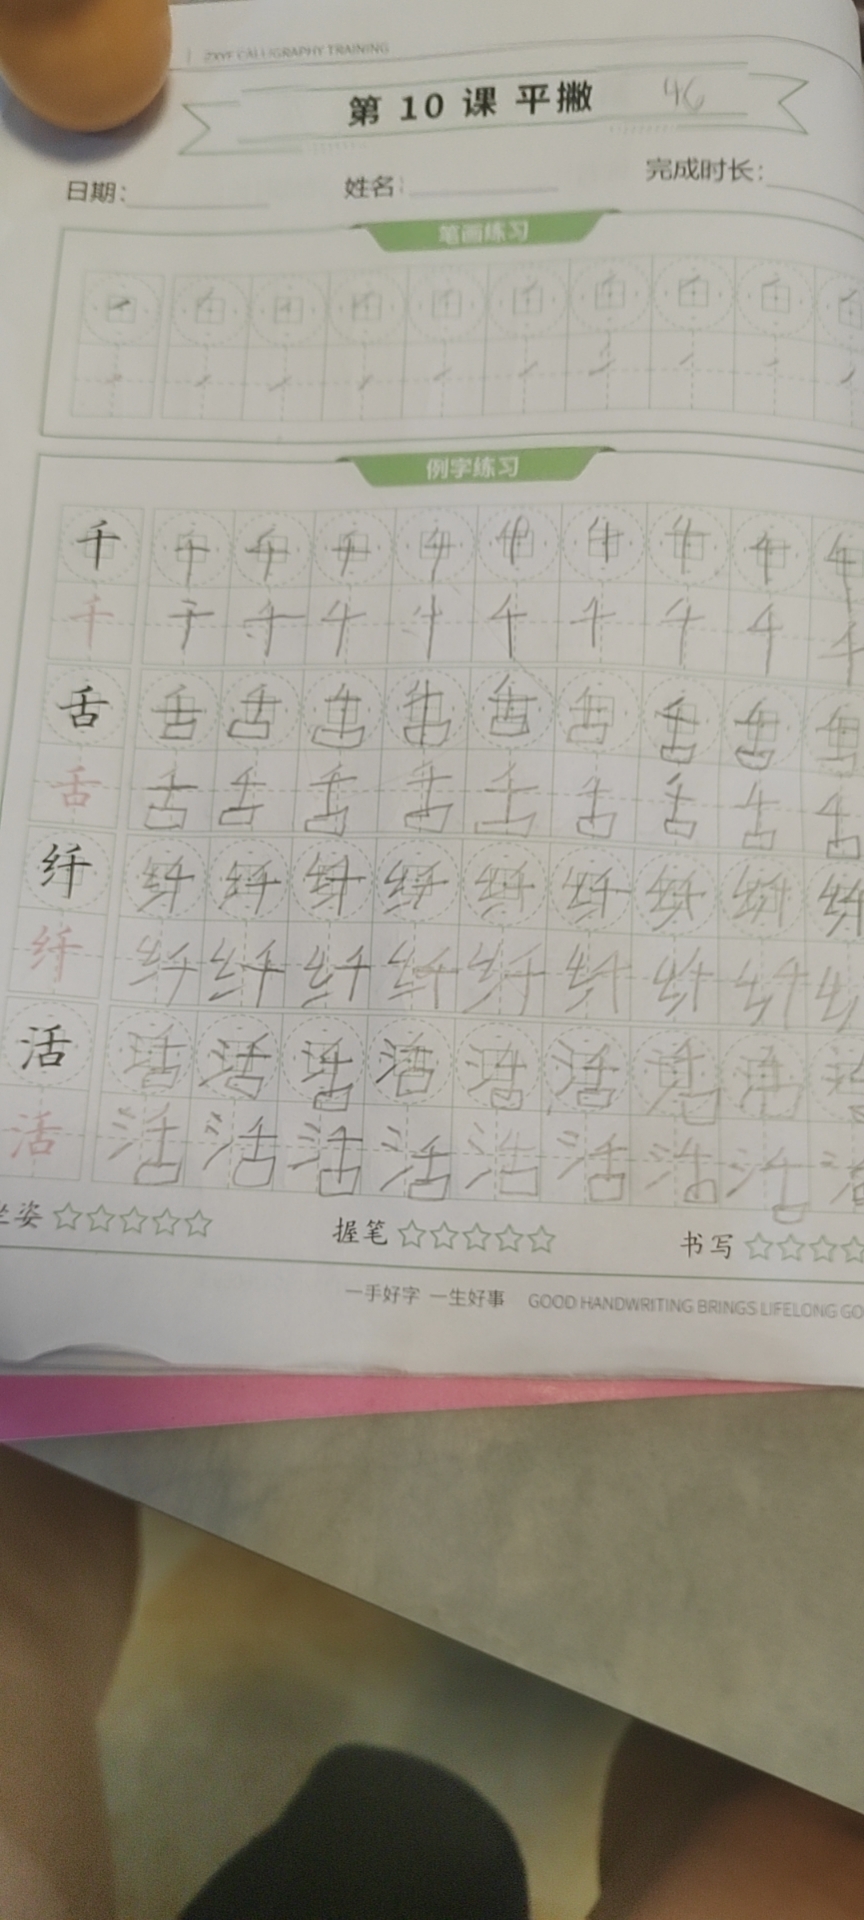 ZXYF CALLIGRAPHY TRAINING
第 10 课 平撇 46
日期: 姓名: 完成时长:
笔画练习
例字练习
千 千 千 千 千 千 千 千 千 千
千 千 千 千 千 千 千 千 千 千
舌 舌 舌 舌 舌 舌 舌 舌 舌 舌
舌 舌 舌 舌 舌 舌 舌 舌 舌 舌
纤 纤 纤 纤 纤 纤 纤 纤 纤 纤
纤 纤 纤 纤 纤 纤 纤 纤 纤 纤
活 活 活 活 活 活 活 活 活 活
活 活 活 活 活 活 活 活 活 活
坐姿 握笔 书写
一手好字 一生好事 GOOD HANDWRITING BRINGS LIFELONG GO